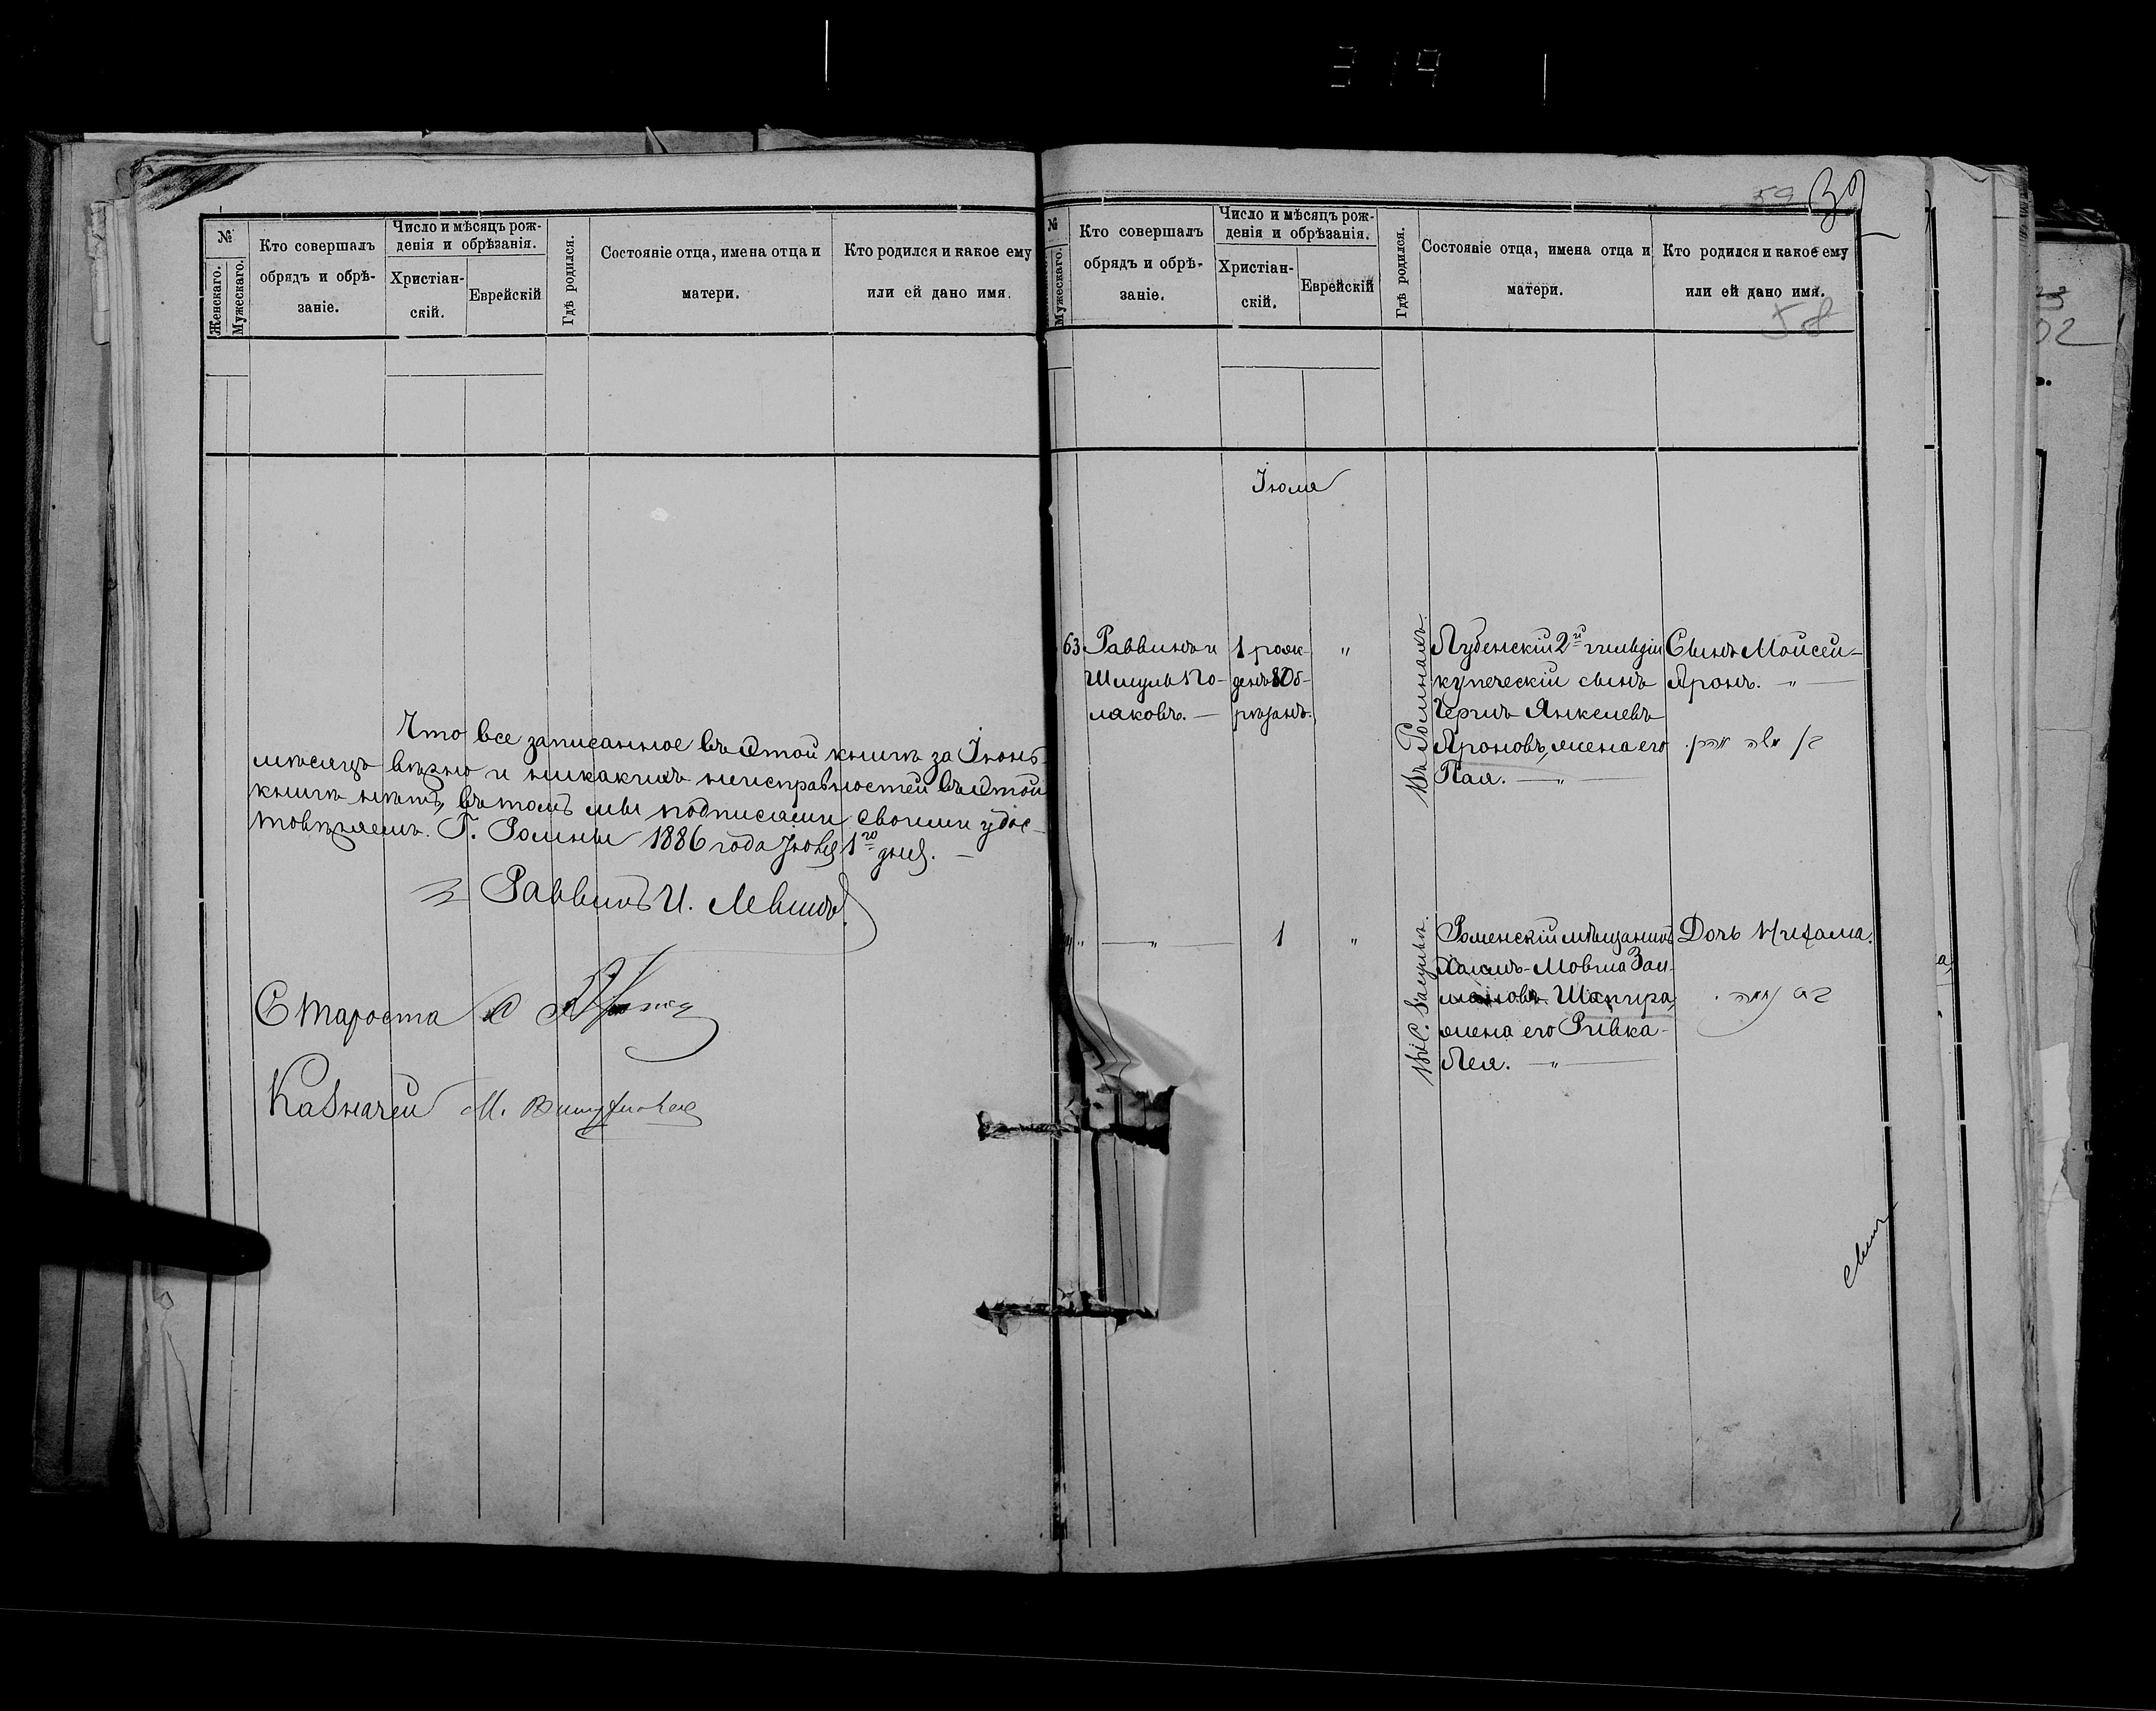 319
№
Женскаго.
Мужескаго.
Кто совершалъ
обрядъ и обрѣ-
заніе.
Число и мѣсяцъ рож-
денія и обрѣзанія.
Христіан-
скій.
Еврейскій
Гдѣ родился.
Состояніе отца, имена отца и
матери.
Кто родился и какое ему
или ей дано имя.
Что все записанное въ этой книгѣ за Іюнь
мѣсяцъ вѣрно и никакихъ неисправностей въ этой
книгѣ нѣтъ, въ томъ мы подписами своими удос-
товѣряемъ. Г. Ромны 1886 года Іюля 1го дня. —
Раввинъ И. Левинъ
Староста
Казначей М.
59 39
№
Мужескаго.
Кто совершалъ
обрядъ и обрѣ-
заніе.
Число и мѣсяцъ рож-
денія и обрѣзанія.
Христіан-
скій.
Еврейскій
Гдѣ родился.
Состояніе отца, имена отца и
матери.
Кто родился и какое ему
или ей дано имя.
58
Іюля
63
Раввинъ и
Шмуль По-
ляковъ. —
1 рож-
денъ 8 Об-
рѣзанъ.
"
Въ Ромнахъ.
Лубенскій 2й гильдіи
купеческій сынъ
Герцъ Янкелевъ
Ароновъ, жена его
Пая. — " —
Сынъ Мойсей-
Аронъ. — " —
בן משה אהרן.
" — " —
1
"
Роменскій мѣщанинъ
Хаимъ-Мовша Зал-
мановъ Шапира,
жена его Ривка-
Лея. — " —
Дочь Нихама.
בת נחמה.
02